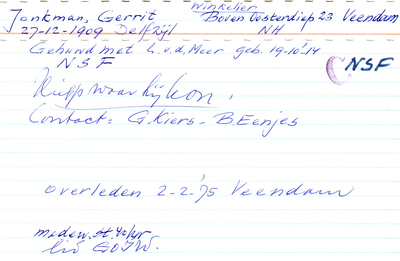 Winkelier
Jonkman, Gerrit Boven Oosterdiep 23 Veendam
27-12-1909 Delfzijl NH
Gehuwd met L.v.d. Meer geb. 19-10-14
NSF NSF
Contact: G. Kiers - B. Eenjes
overleden 2-2-'75 Veendam
medew.
lid